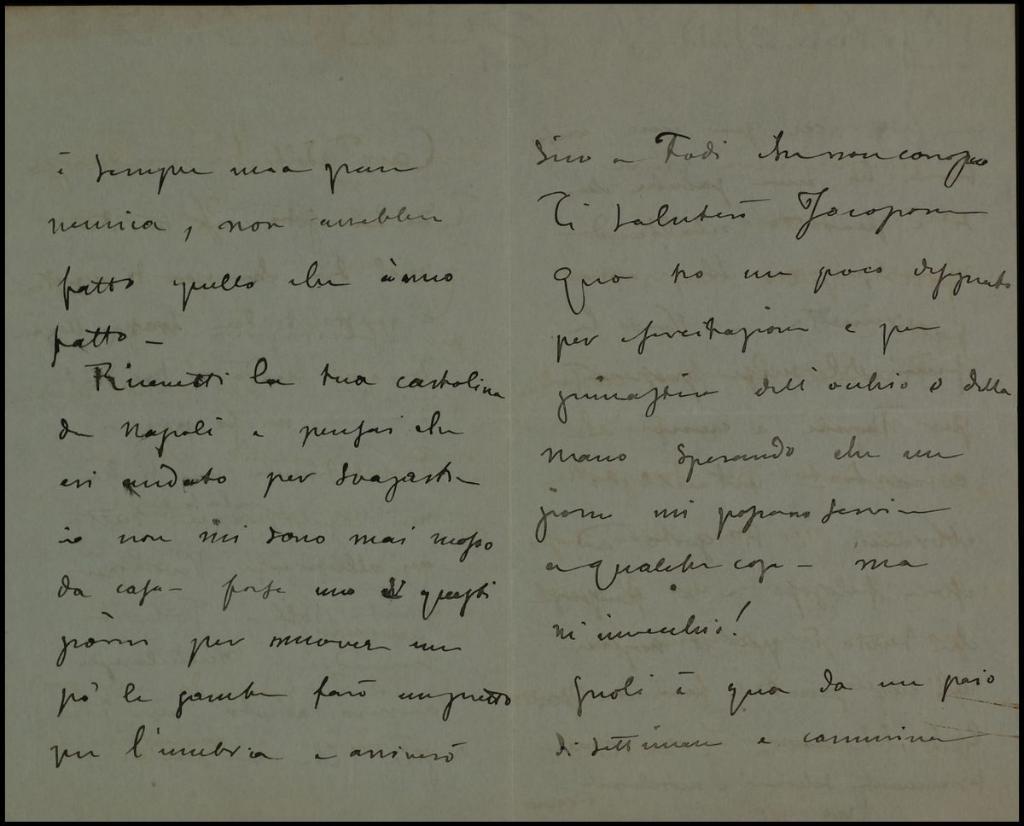 è sempre una gran
nemica, non avrebber
fatto quello che ànno
fatto –
Ricevetti la tua cartolina
da Napoli e pensai che
eri andato per svagarti –
io non mi sono mai mosso
da casa – forse uno di questi
giorni per muovere un
pò le gambe farò un giretto
per l'umbria e arriverò
sino a Todi che non conosco
Ti saluterò Jacopone
Qua ho un poco disegnato
per esercitazione e per
ginnastica dell'occhio e della
mano sperando che un
giorno mi possano servire
a qualche cosa – ma
m'invecchio!
Gnoli è qua da un paio
di settimane e cammina